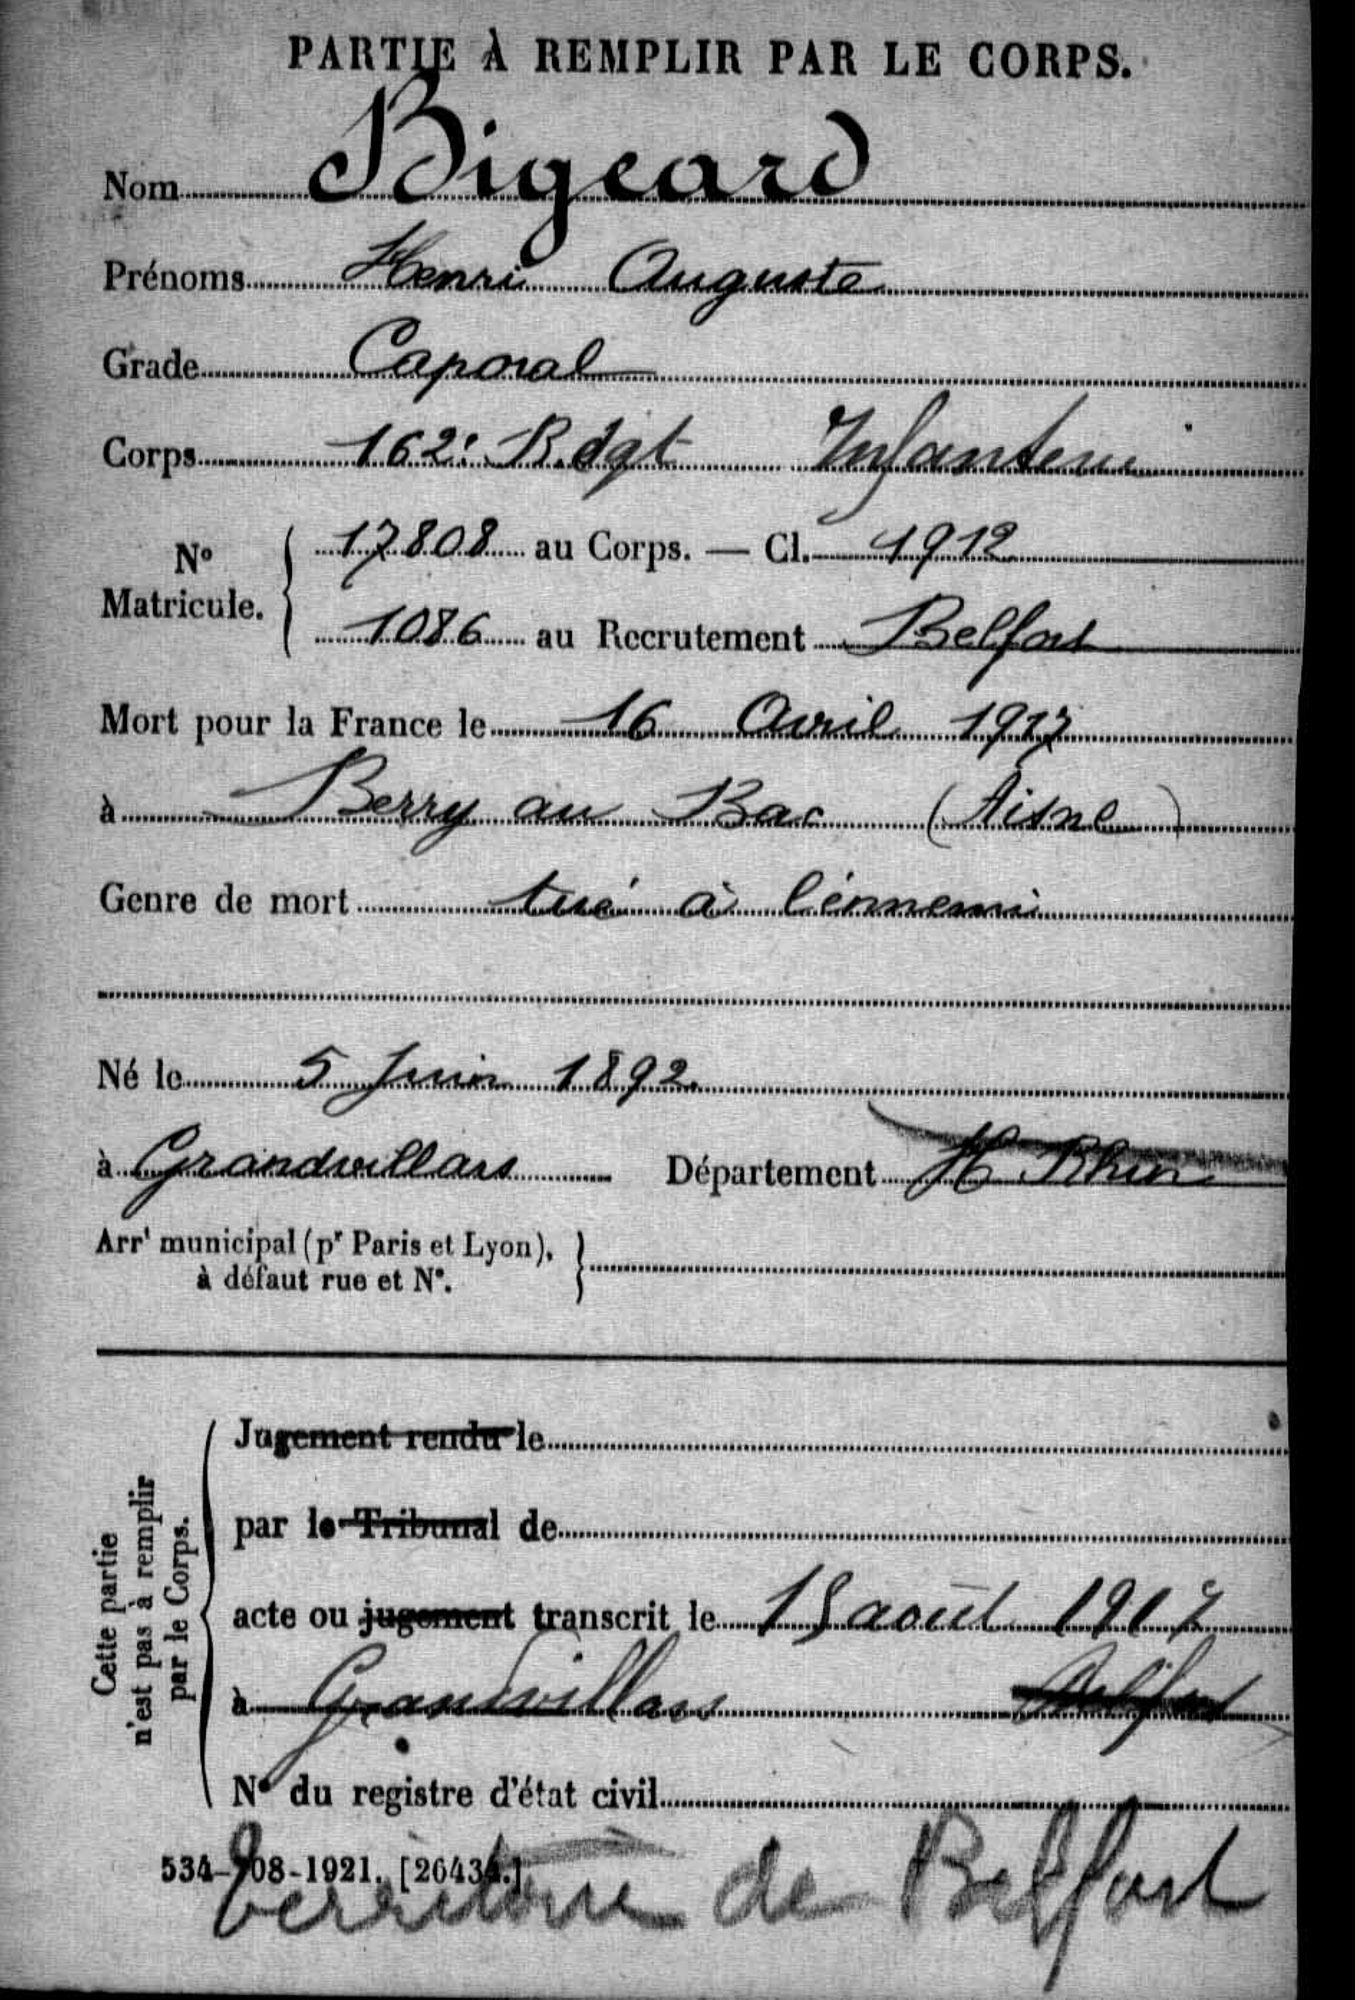 PARTIE À REMPLIR PAR LE CORPS.
Nom Bigeard
Prénoms Henri Auguste
Grade Caporal
Corps 162e Régt Infanterie
N° Matricule. { 17808 au Corps. — Cl. 1912
1086 au Recrutement Belfort
Mort pour la France le 16 Avril 1917
à Berry au Bac (Aisne)
Genre de mort tué à l'énnemi
Né le 5 Juin 1892
à Grandvillars Département H Rhin
Arrt municipal (pr Paris et Lyon),
à défaut rue et N°.
Cette partie
n'est pas à remplir
par le Corps.
Jugement rendu le
par le Tribunal de
acte ou jugement transcrit le 15 août 1917
à Grandvillars Belfort
N° du registre d'état civil
534-708-1921. [26434.]
territoire de Belfort